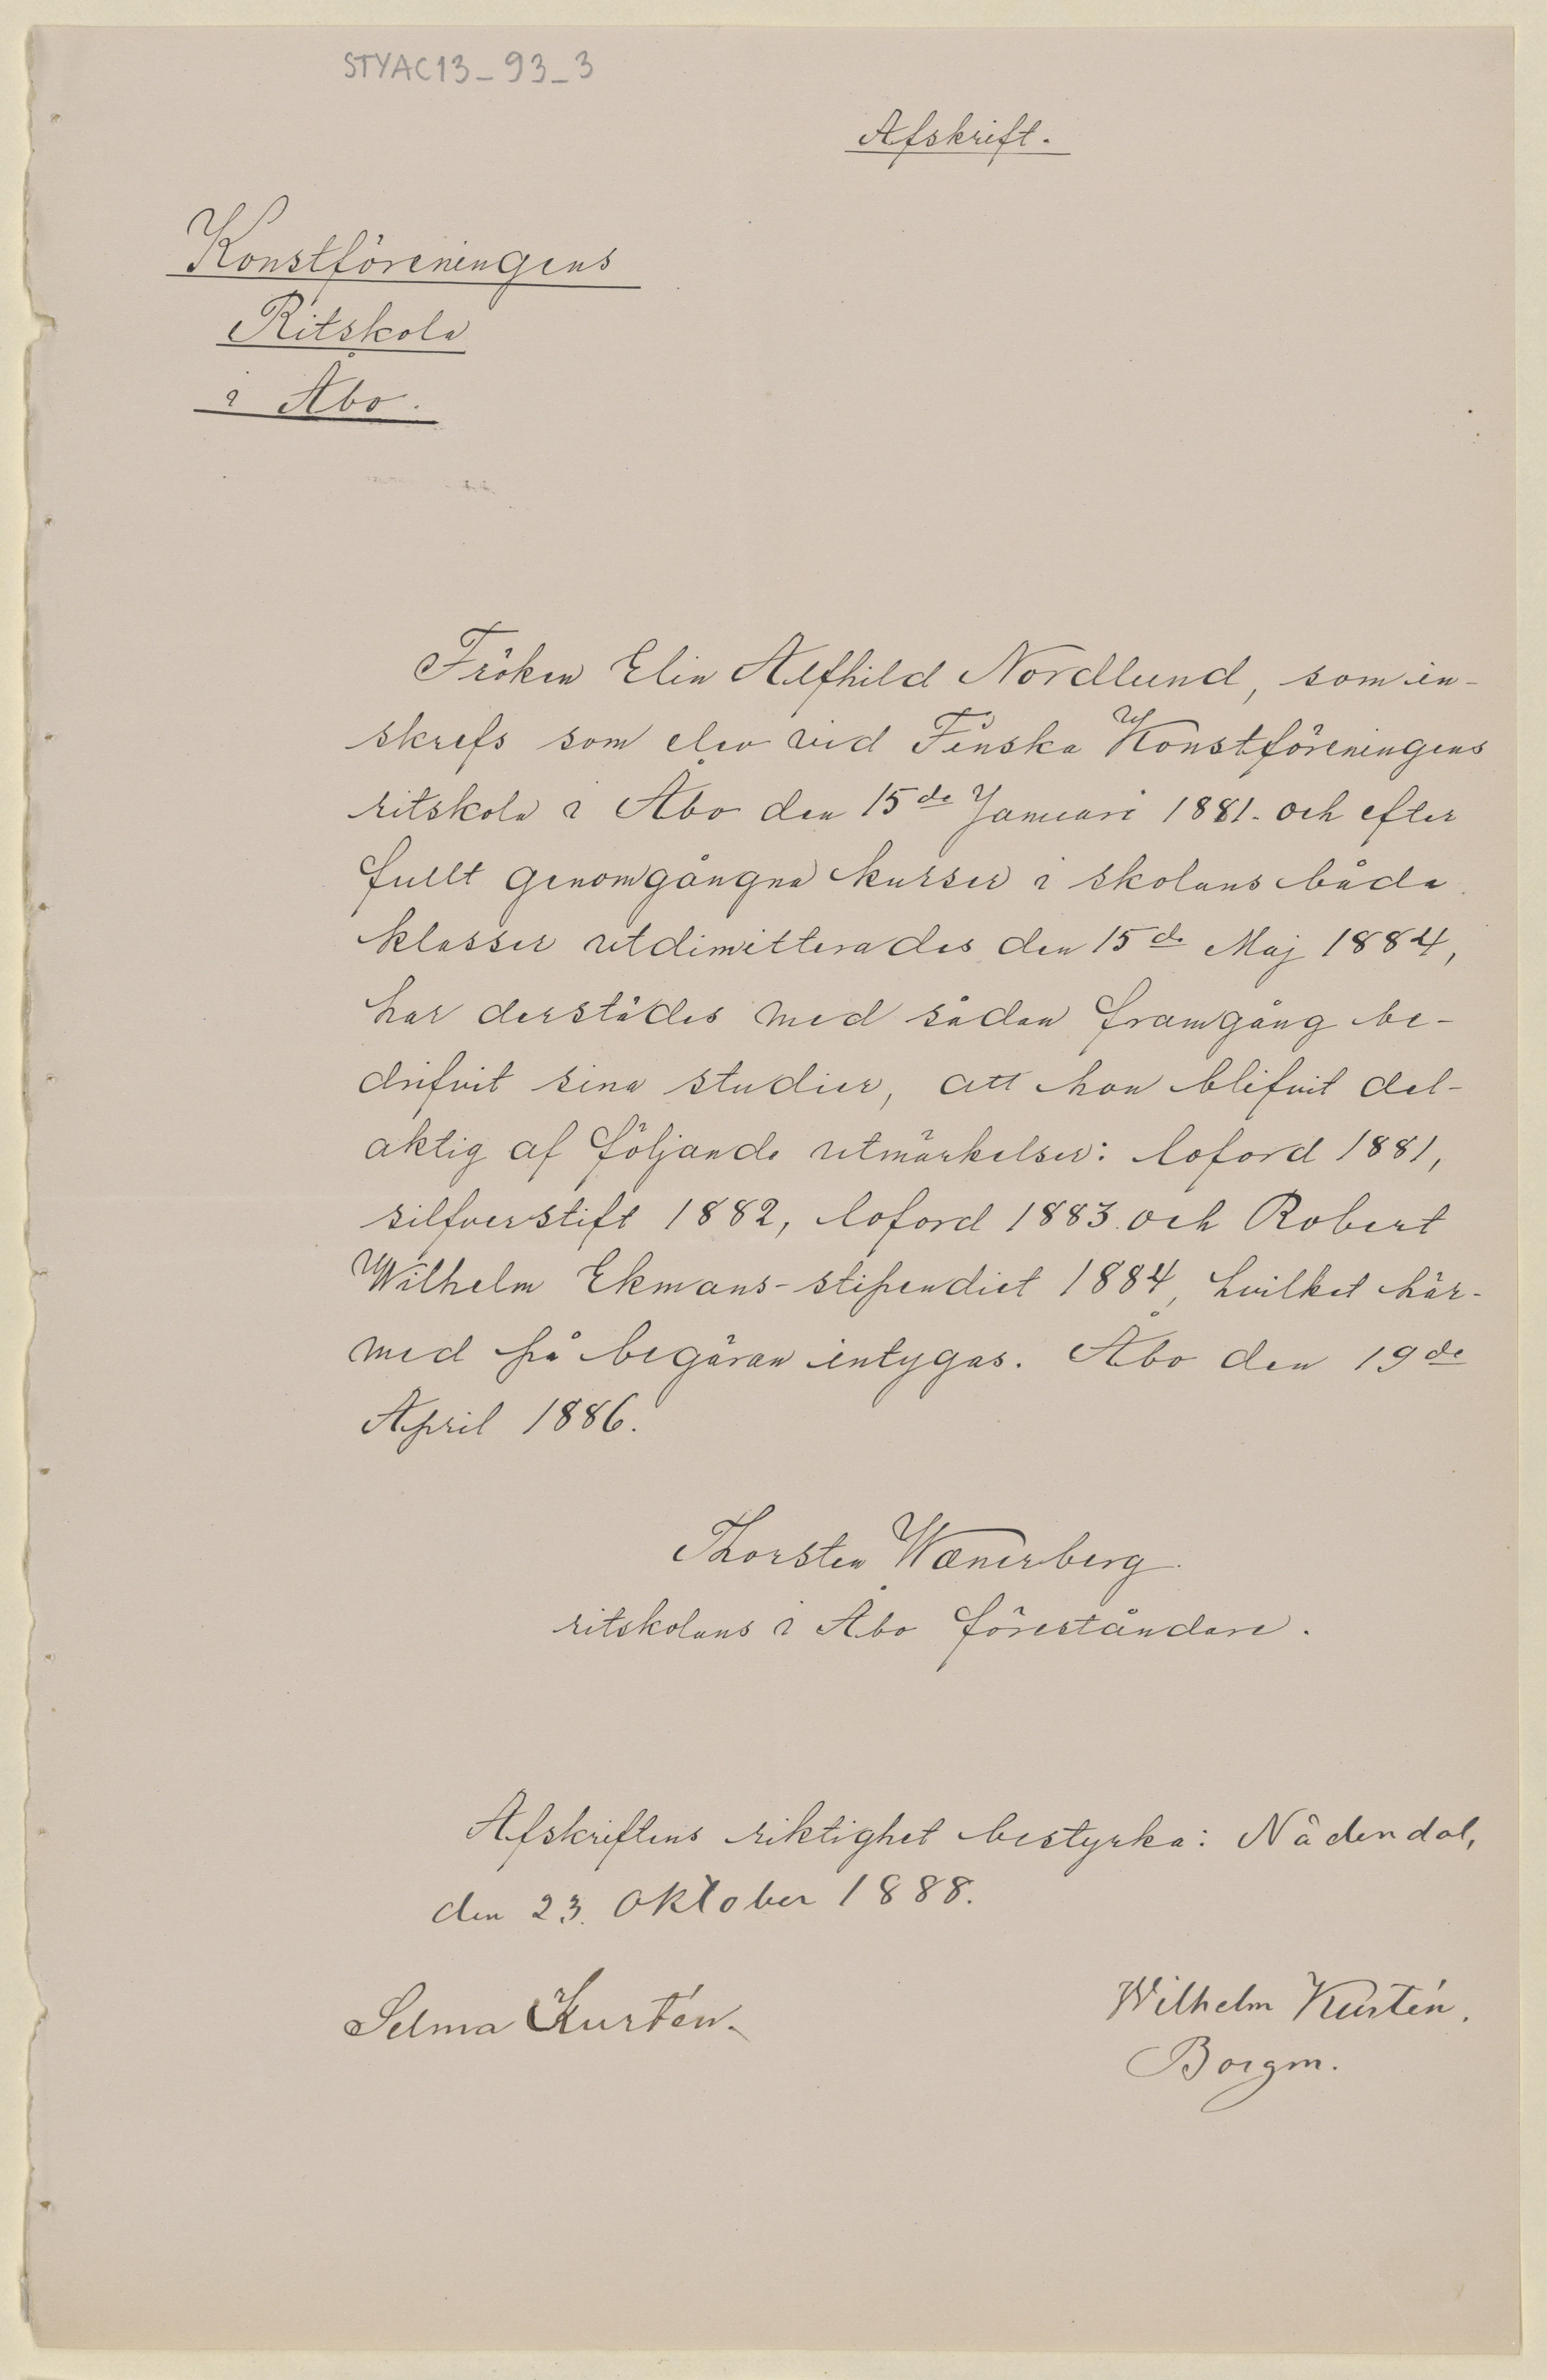 STYAC13_93_3
Afskrift.
Konstföreningens
Ritskola
i Åbo.
Fröken Elin Alfhild Nordlund, som in-
skrefs som elev vid Finska Konstföreningens
ritskola i Åbo den 15de Januari 1881. och efter
fullt genomgångna kurser i skolans båda
klasser utdimitterades den 15de Maj 1884,
har derstädes med sådan framgång be-
drifvit sina studier, att hon blifvit del-
aktig af följande utmärkelser: loford 1881,
silfverstift 1882, loford 1883 och Robert
Wilhelm Ekmans-stipendiet 1884, hvilket här-
med på begäran intygas. Åbo den 19de
April 1886.
Thorsten Wænerberg.
ritskolans i Åbo föreståndare.
Afskriftens riktighet bestyrka: Nådendal,
den 23. Oktober 1888.
Selma Kurtén.
Wilhelm Kurtén.
Borgm.